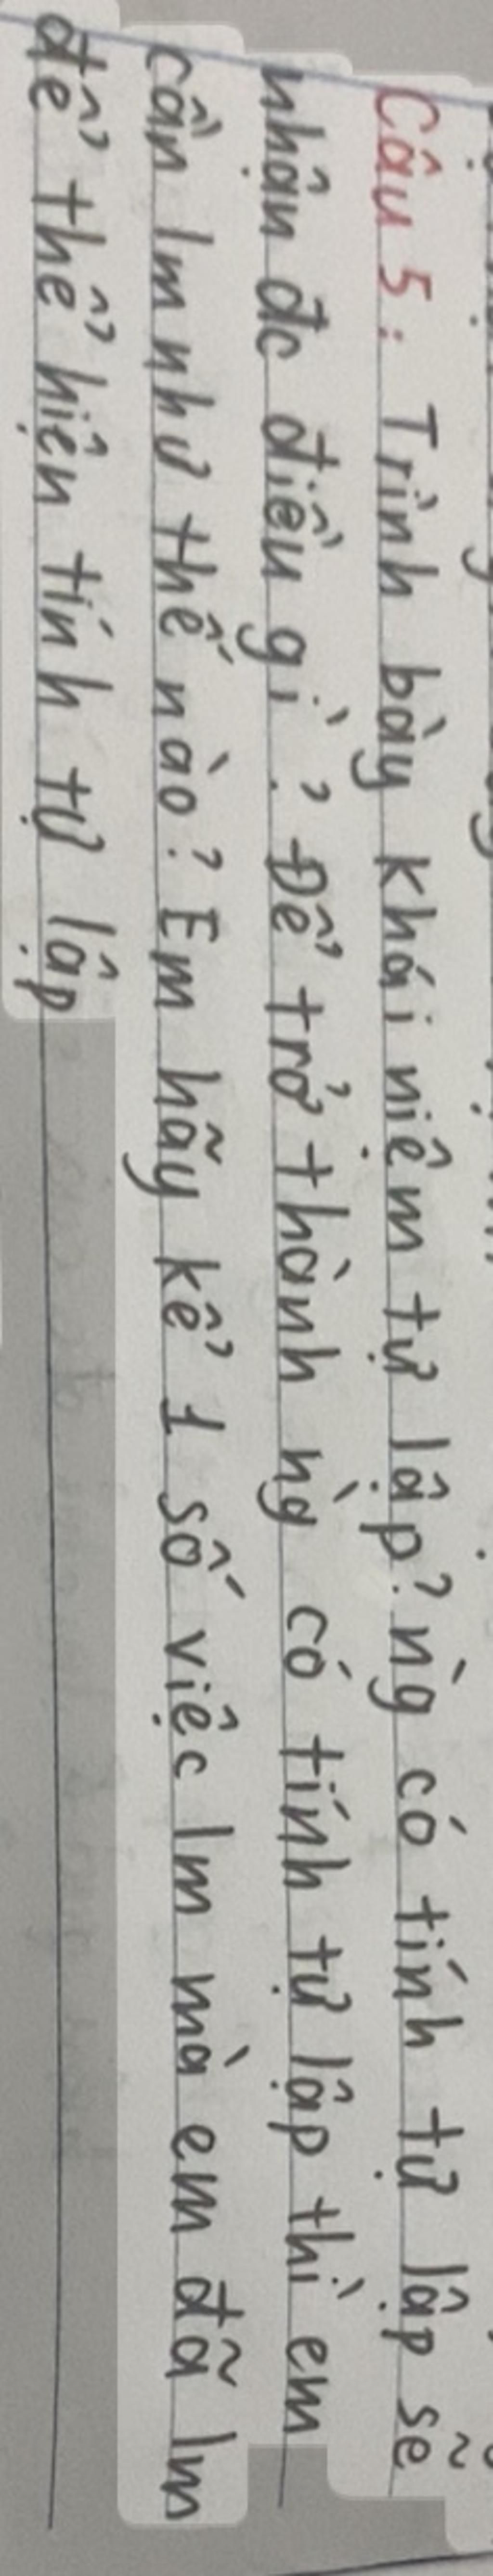 Câu 5: Trình bày khái niệm tự lập? ng̀ có tính tự lập sẽ
nhận đc điều gì? Để trở thành ng̀ có tính tự lập thì em
cần lm như thế nào? Em hãy kể 1 số việc lm mà em đã lm
để thể hiện tính tự lập